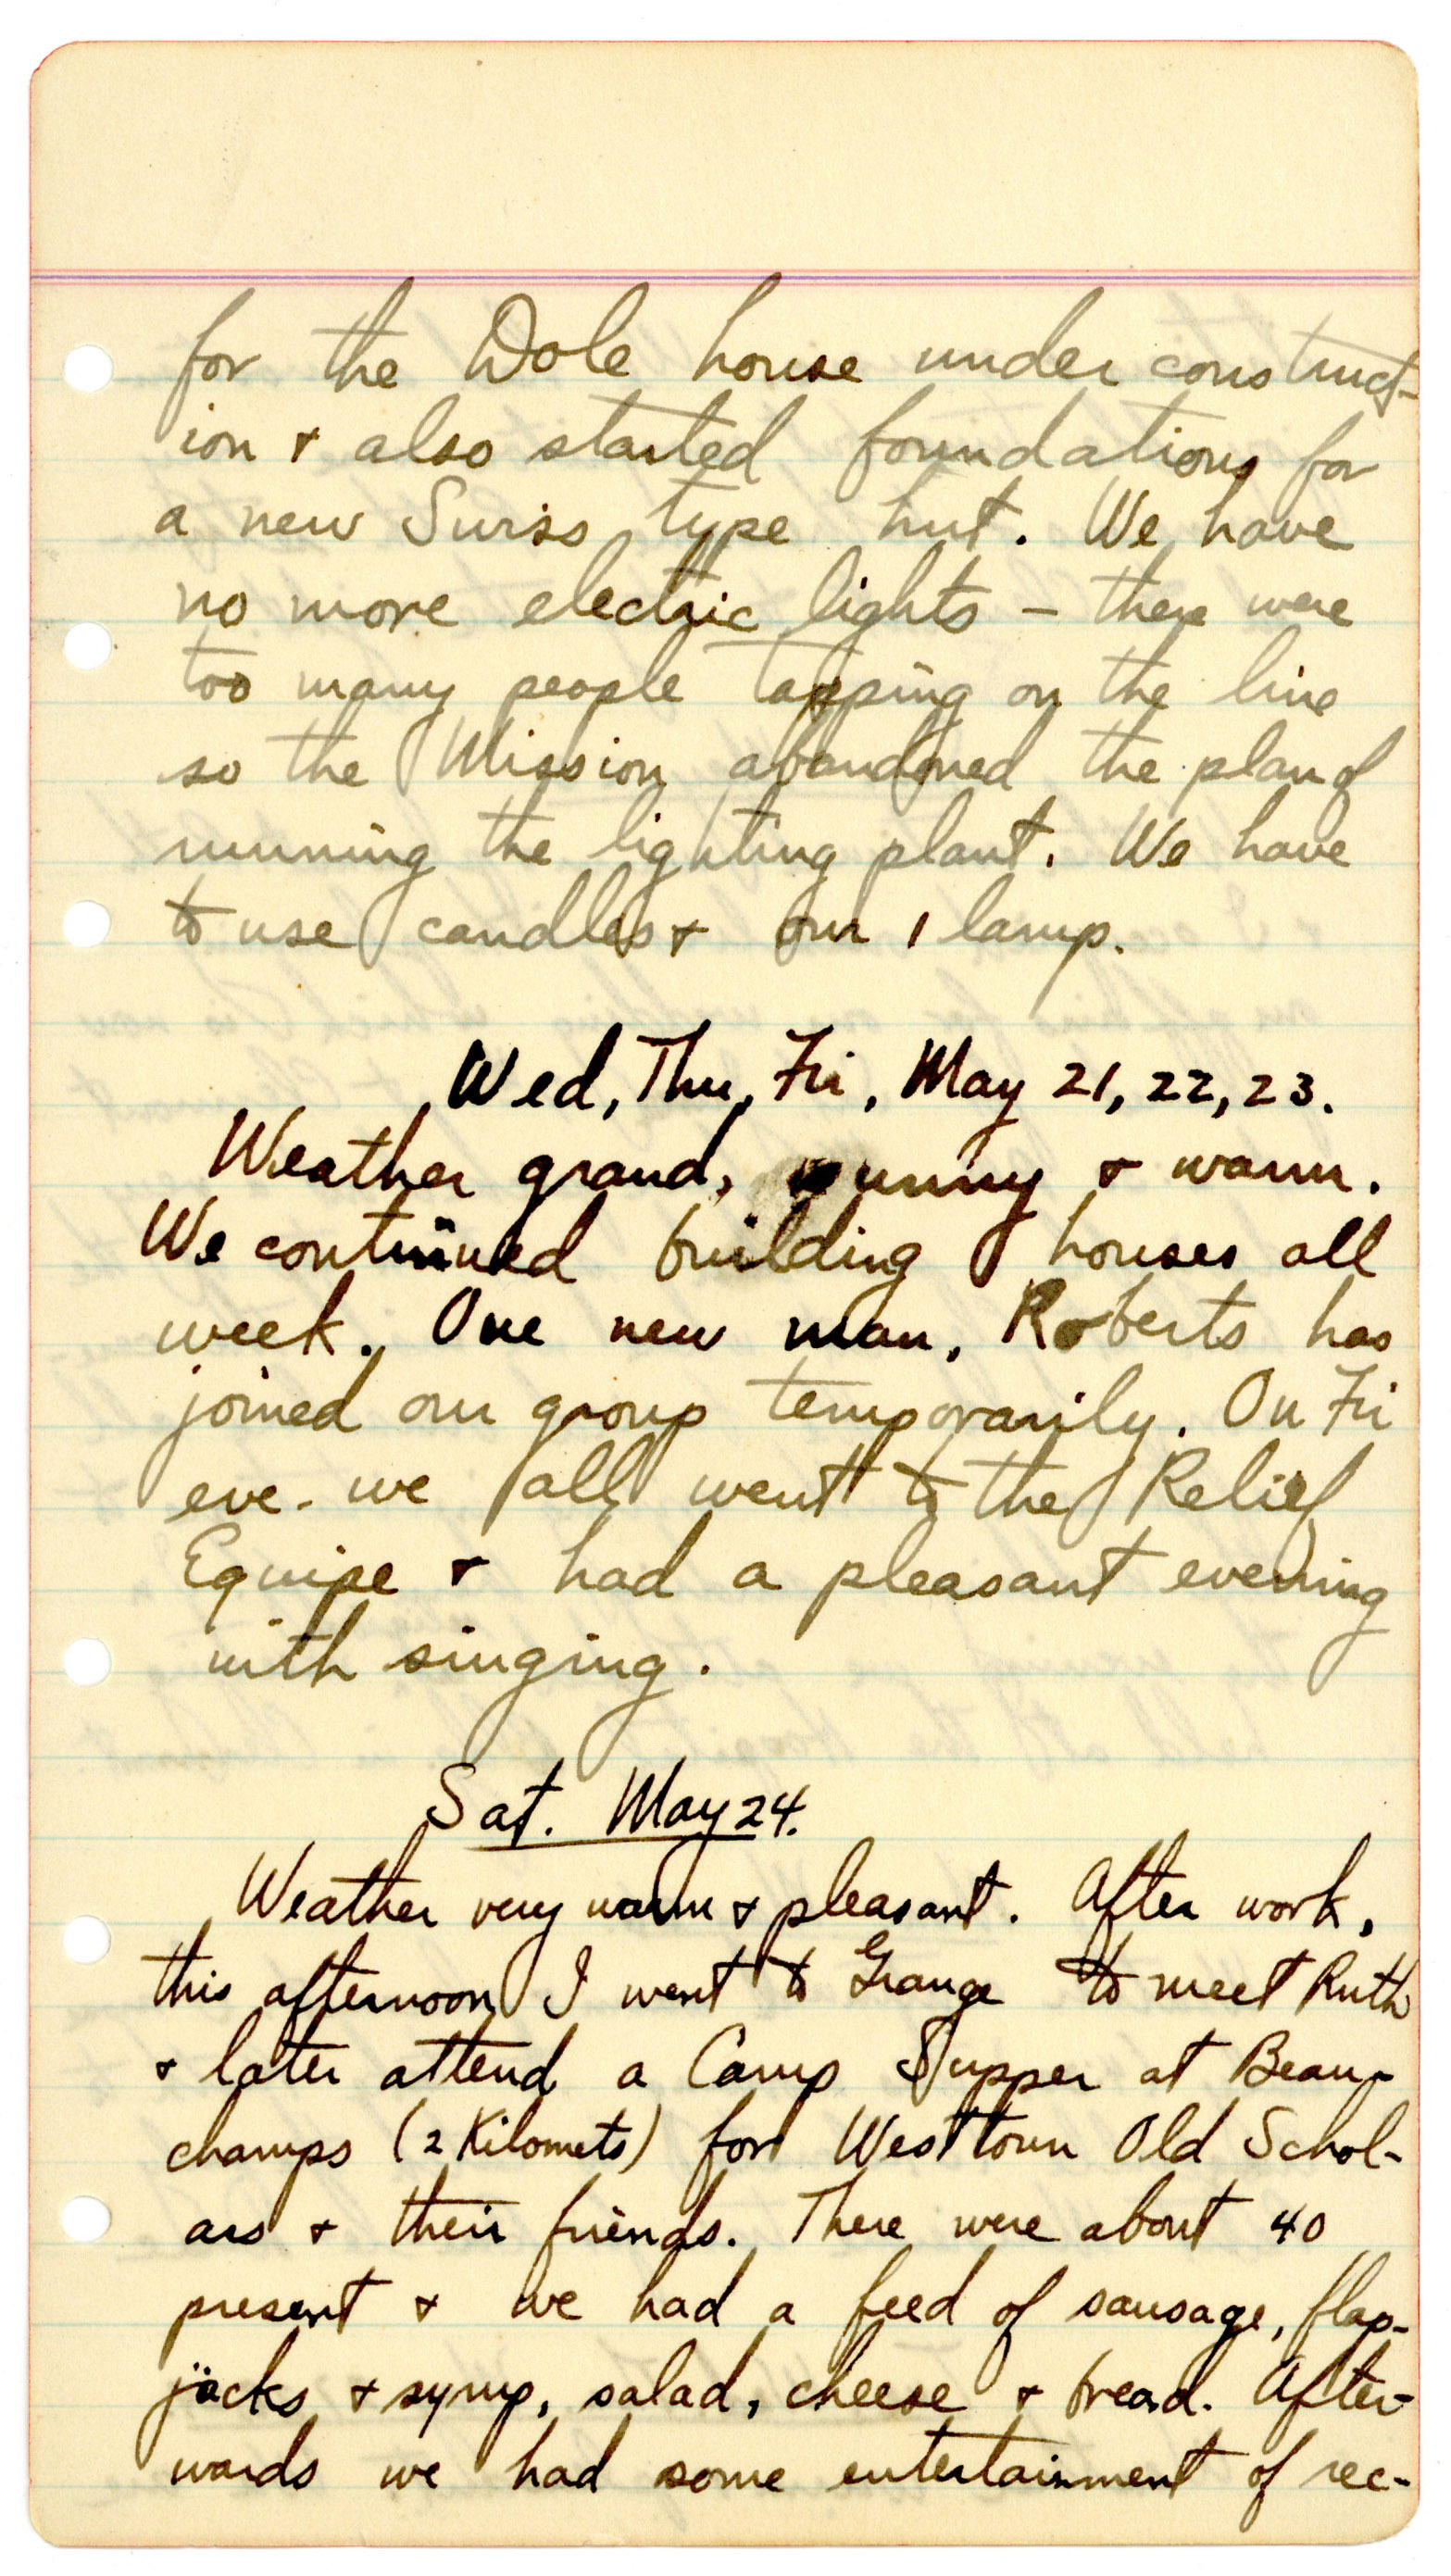 for the Dole house under construct-
ion & also started foundations for
a new Swiss type hut. We have
no more electric lights – there were
too many people tapping on the line
so the Mission abandoned the plan of
running the lighting plant. We have
to use candles & our 1 lamp.
Wed, Thu, Fri, May 21, 22, 23.
Weather grand, sunny & warm.
We continued building houses all
week. One new man, Roberts has
joined our group temporarily. On Fri
eve. we all went to the Relief
Equipe & had a pleasant evening
with singing.
Sat. May 24.
Weather very warm & pleasant. After work,
this afternoon I went to Grange to meet Ruth
& later attend a Camp Supper at Beau-
champs (2 Kilomets) for Westtown Old Schol-
ars & their friends. There were about 40
present & we had a feed of sausage, flap-
jacks & syrup, salad, cheese & bread. After-
wards we had some entertainment of rec-